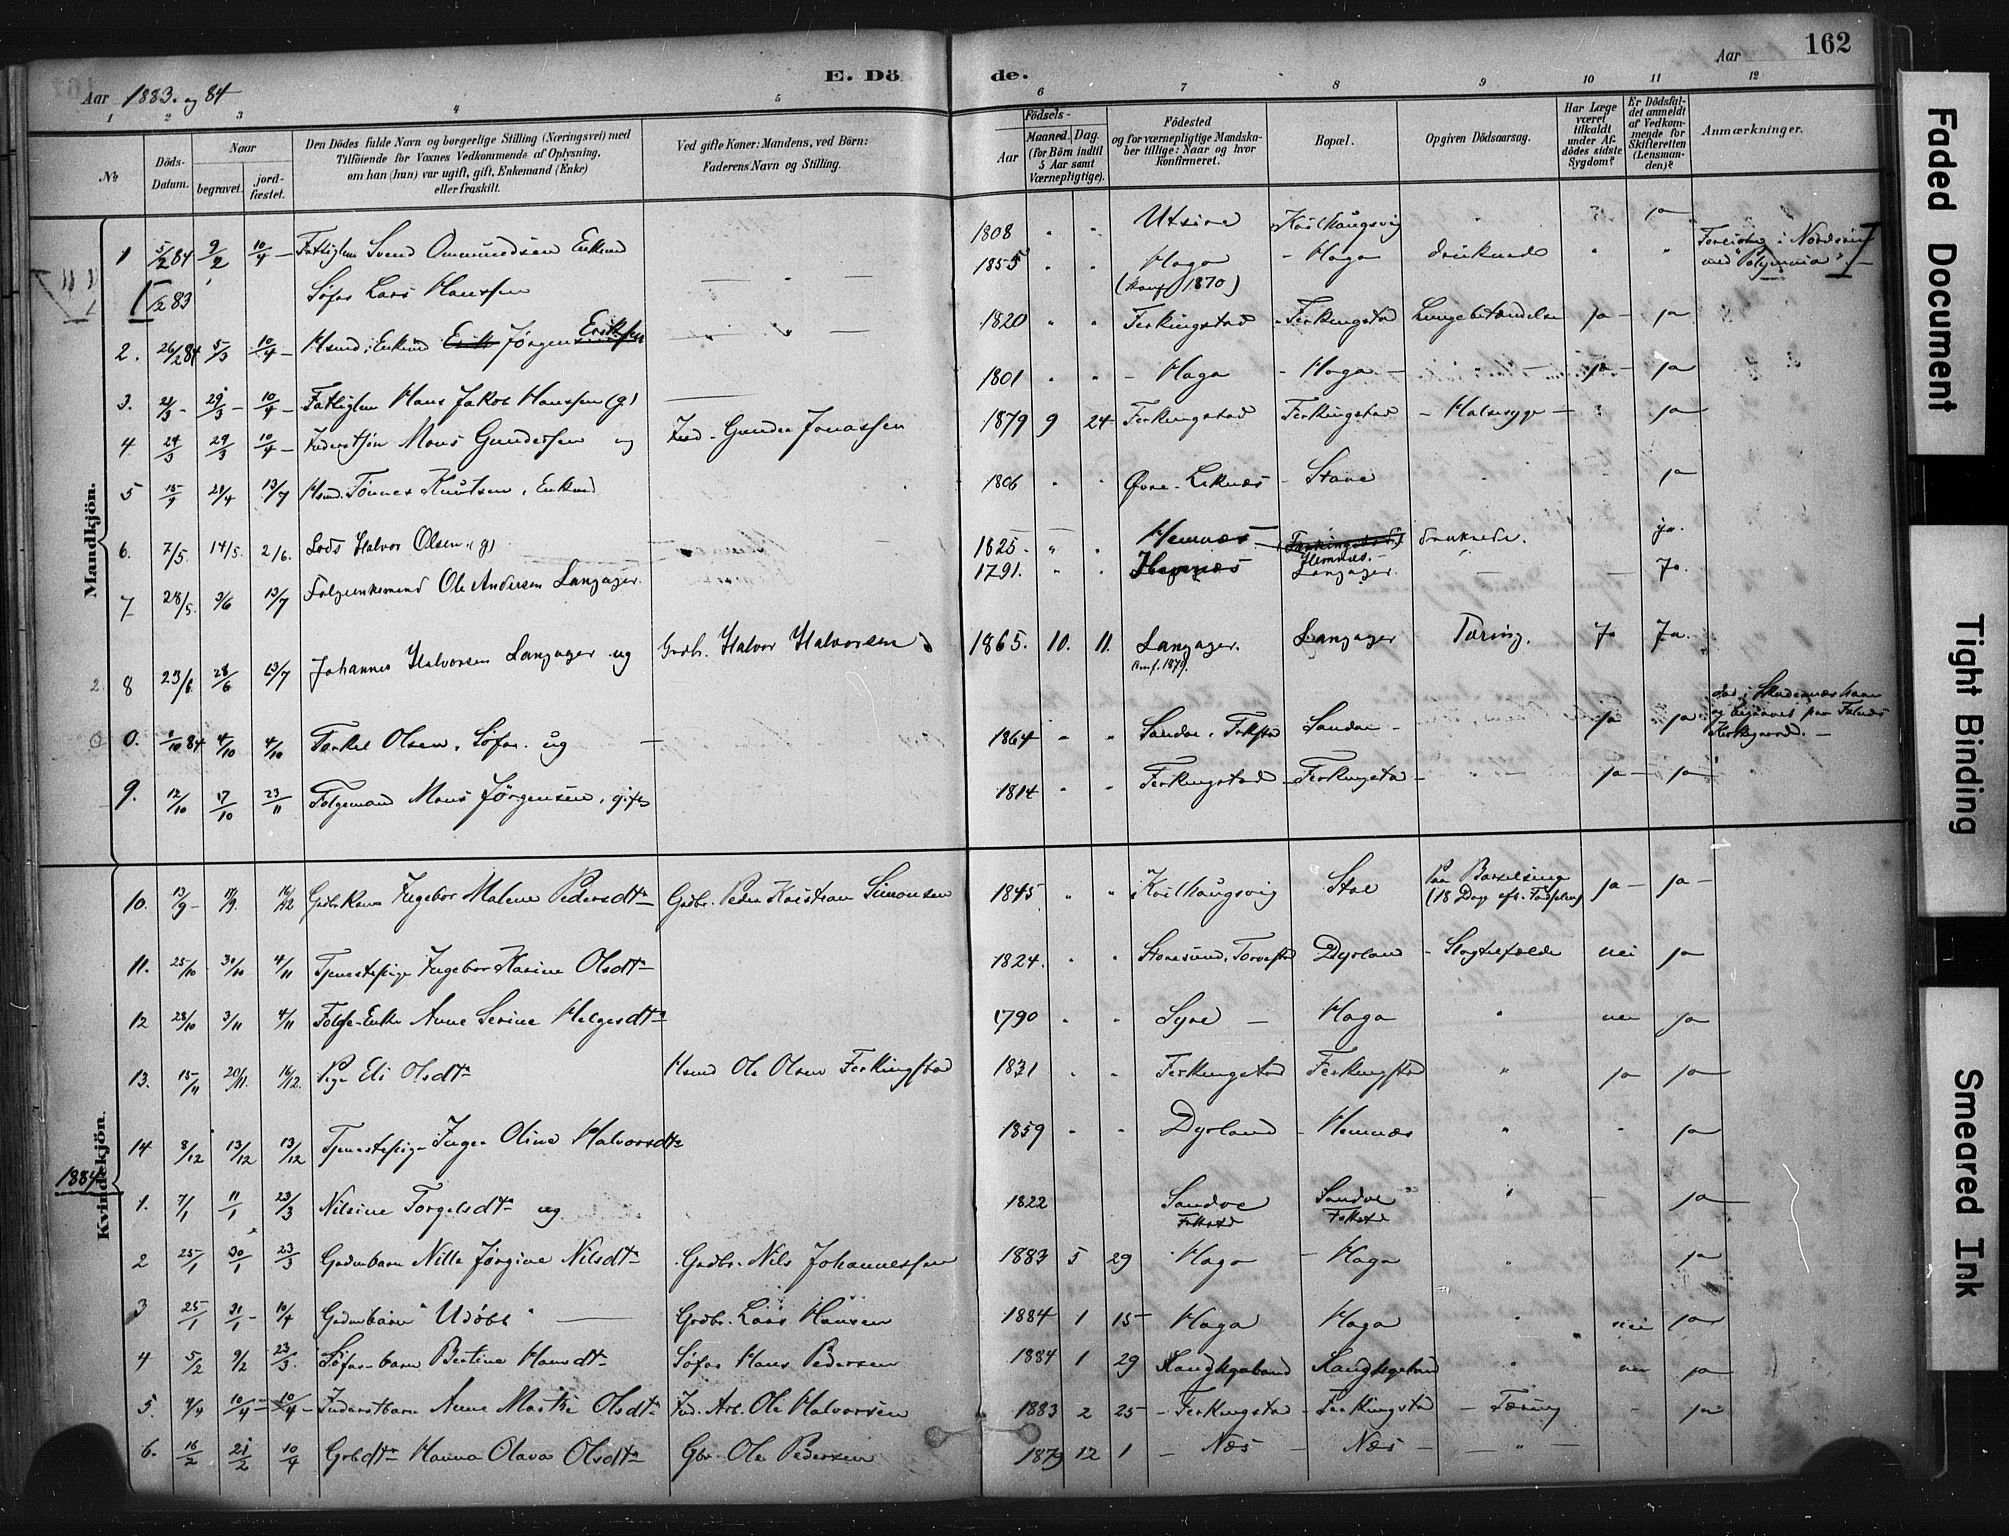 Aar 1883. og 84
E. Dö
de.
Aar
162
1 2 3 4 5 6 7 8 9 10 11 12
No
Döds-Datum.
Naar
begravet.
jord-fæstet.
Den Dödes fulde Navn og borgerlige Stilling (Næringsvei) med
Tilföiende for Voxnes Vedkommende af Oplysning,
om han (hun) var ugift, gift, Enkemand (Enke)
eller fraskilt.
Ved gifte Koner: Mandens, ved Börn:
Faderens Navn og Stilling.
Födsels-
Aar
Maaned. Dag.
(for Börn indtil
5 Aar samt
Værnepligtige).
Födested
og for værnepligtige Mandska-
ber tillige: Naar og hvor
konfirmeret.
Bopæl.
Opgiven Dödsaarsag.
Har Læge
været
tilkaldt
under Af-
dödes sidste
Sygdom?
Er Dödsfal-
det anmeldt
af Vedkom-
mende for
Skifteretten
(Lensman-
den)?
Anmærkninger.
Mandkjön.
1 5/2 84 9/2 10/4 Fattiglem Svend Ommundsen Enkmd 1808 " " Utsire ja
/2 83 Søfar Lars Hansen 1855 " " Haga (konf. 1870) - Haga druknede " "
2. 26/2 84 5/3 10/4 Hsmd. Enkmd Erik Jørgen Eriksen 1820 " " Ferkingstad Ferkingstad Lungebetændelse ja ja
3. 21/3 29/3 10/4 Fattiglem Hans Jakob Hanssen (g) 1801 " " - Haga - Haga - ja - ja
4 24/3 29/3 10/4 Inderstsøn Mons Gundersen ug Ind. Gunder Jonassen 1879 9 24 Ferkingstad Ferkingstad - Halssyge - ja
5 15/4 21/4 13/7 Hsmd. Tønnes Knutsen, Enkmd 1806 " " Øvre-Liknæs - Stave ja
6. 7/5. 14/5. 2/6. Lods Halvor Olsen (g) 1825. " " Hemnæs (Ferkingstad) Hemnæs. druknede. ja.
7 28/5. 3/6 13/7 Folgeenkemand Ole Andersen Langager. 1791. " " Hemnæs Langager. Ja.
8 23/6. 28/6 13/7 Johannes Halvorsen Langager ug Grdbr. Halvor Halvorsen 1865. 10. 11. Langager. Conf. 1879. Langager Tæring. Ja Ja.
0. 1/10 84 4/10 4/10 Torkel Olsen, Søfar. ug 1864 " " Sandve, Falkstd Sandve - ja - ja død i Skudesnæshavn
og begravet paa Falnes
Kirkegaard. -
9. 12/10 17/10 23/11 Folgemand Mons Jørgensen, gift 1814 " " Ferkingstad - Ferkingstad - ja - ja
Kvindekjön.
10. 13/9 17/9. 16/12 Grdbr.Kone Ingebor Malene Pedersdtr Grdbr. Peder Kristian Simonsen 1845 " " Kvilhaugsvig Stol Paa Barselseng ja - ja -
11. 25/10 30/10 4/11 Tjenestepige Ingebor Karine Olsdtr 1824. " " Storesund, Torvestd Dyrland - Slagtilfælde nei ja
12 28/10 3/11 4/11 Folge-Enke Anne Serine Helgesdtr 1790 " " Syre - Haga " nei ja
13. 15/11 20/11. 16/12. Pige Eli Olsdtr Hsmd Ole Olsen Ferkingstad 1831 " " Ferkingstad Ferkingstad " ja ja
14 8/12 13/12 13/12 Tjenestepige Inger Oline Halvorsdtr 1859 " " Dyrland - Hemnæs " " ja
1884
1. 7/1 11/1 23/3 Nilsine Torgelsdtr ug 1822 Sandve Falkstd Sandve Falkstd " - ja
2 25/1 30/1 23/3 Grdmbarn Nille Jørgine Nilsdtr Grdbr. Nils Johannessen 1883 5 29 Haga - Haga " ja
3 25/1 31/1 10/4 Grdmbarn "Udøbt" Grdbr. Lars Hansen 1884 1 15 Haga Haga " nei ja
4 5/2 9/2 23/3. Søfar-barn Bertine Hansdtr Søfar Hans Pedersen 1884 1 29 " nei ja
5. 4/4 10/4 10/4 Inderstbarn Anne Marthe Olsdtr Ind. Arb. Ole Halvorsen 1883 2 25 - Ferkingstad - Ferkingstad - Tæring " ja
6. 16/2 21/2 10/4 Grbdtr Hanna Olava Olsdtr Gbr. Ole Pedersen 1879 12 1 - Næs - Næs - "
Faded Document
Tight Binding
Smeared Ink